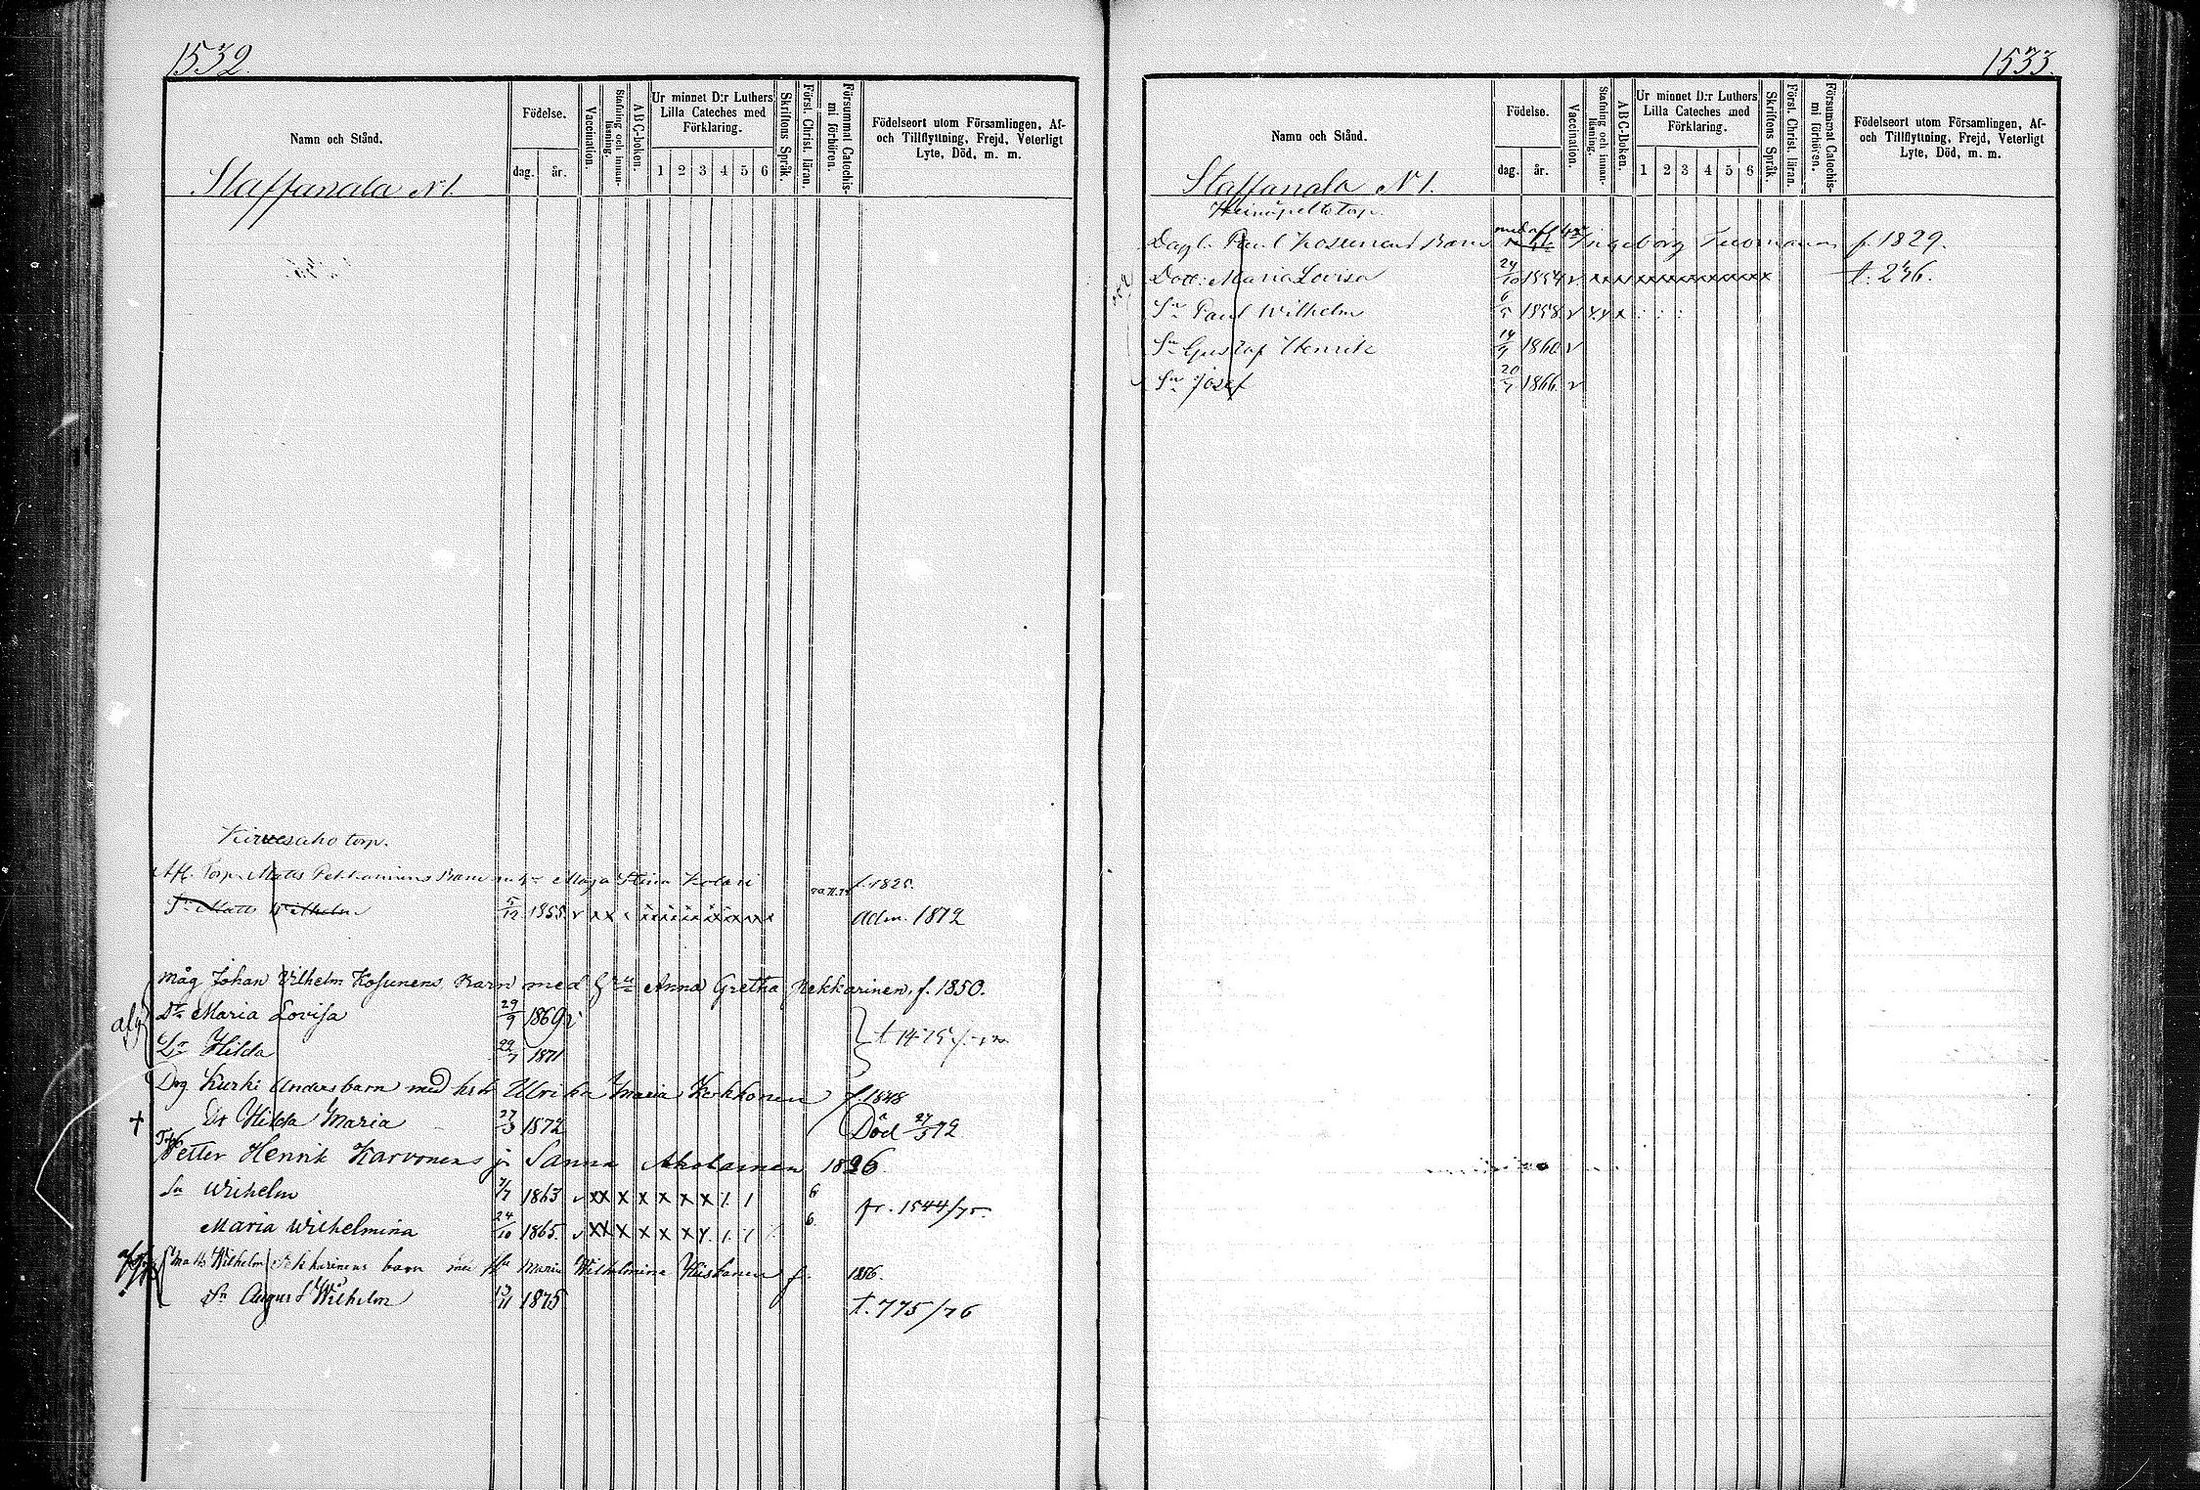 1532.
Namn och Stånd.
Födelse.
dag.
år.
Vaccination.
Stafning och innan-
läsning.
ABC-boken.
Ur minnet D:r Luthers
Lilla Cateches med
Förklaring.
1 2 3 4 5 6
Skriftens Språk.
Först. Christ. läran.
Försummat Catechis-
mi förhören.
Födelseort utom Församlingen, Af-
och Tillflyttning, Frejd, Veterligt
Lyte, Död, m. m.
Staffanala N 1.
Kirvesaho torp.
Afl. Torp. Matts Pekkarinens Barn m. h. Maja Stina f. 1825.
Sn Matts Wilhelm 5/12 1855 v x x x x x x x x x x adm. 1872
Måg Johan Vilhelm Kosunens Barn med Anna Gretha Pekkarinen, f. 1850.
Dr Maria Lovisa 29/9 1869
Dr Hilda 29/7 1871
afg
Drg Kurki Anders barn med hstr Ulrika Maria Kokkonen f. 1848
+ Dr Hilda Maria 27/3 1872 Död 27/5 72
Petter Henrik Karvonens Sanna Aholainen 1826.
Sn Wilhelm 7/7 1863 v x x x x x x x 6
fr. 1544/75
Maria Wilhelmina 24/10 1865. v x x x x x x x 6
Matts Wilhelm Pekkarinens barn med Hu Maria Wilhelmina f. 1856.
Sn August Wilhelm 13/11 1875 t. 775/76
1533.
Namn och Stånd.
Födelse.
dag.
år.
Vaccination.
Stafning och innan-
läsning.
ABC-boken.
Ur minnet D:r Luthers
Lilla Cateches med
Förklaring.
1 2 3 4 5 6
Skriftens Språk.
Först. Christ. läran.
Försummat Catechis-
mi förhören.
Födelseort utom Församlingen, Af-
och Tillflyttning, Frejd, Veterligt
Lyte, Död, m. m.
Staffanala N 1.
Heinäpelto torp.
Dagl. Paul Kosunens Barn med afl. Ingeborg Tuomainen f. 1829.
Dott. Maria Lovisa 24/10 1854 v x x x x x x x x x x t. 246.
Sn Paul Wilhelm 6/5 1858 v x x x
Sn Gustaf Henrik 14/4 1860 v
Sn Josef 20/7 1866 v